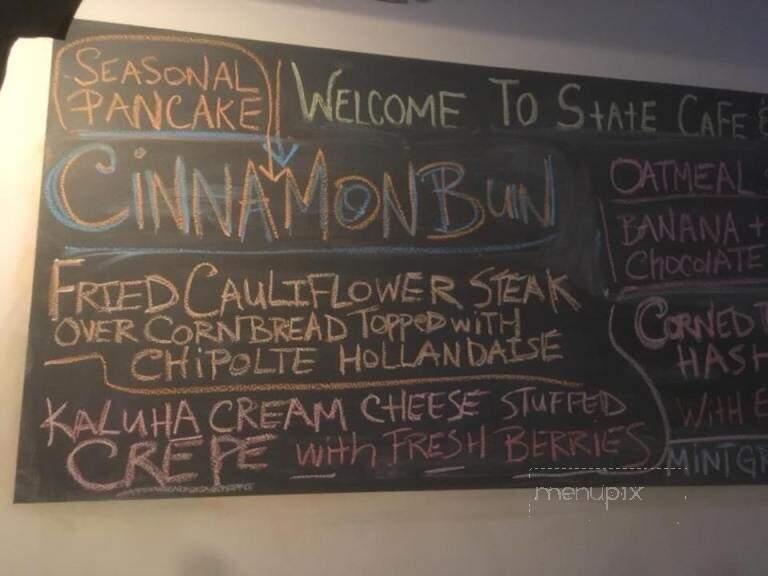 SEASONAL
PANCAKE
WELCOME TO STATE CAFE &
CINNAMON BUN
FRIED CAULIFLOWER STEAK
OVER CORNBREAD TOPPED WITH
CHIPOLTE HOLLANDAISE
KALUHA CREAM CHEESE STUFFED
CREPE with FRESH BERRIES
OATMEAL
BANANA +
CHOCOLATE
CORNED
HASH
WITH
MINT
menupix